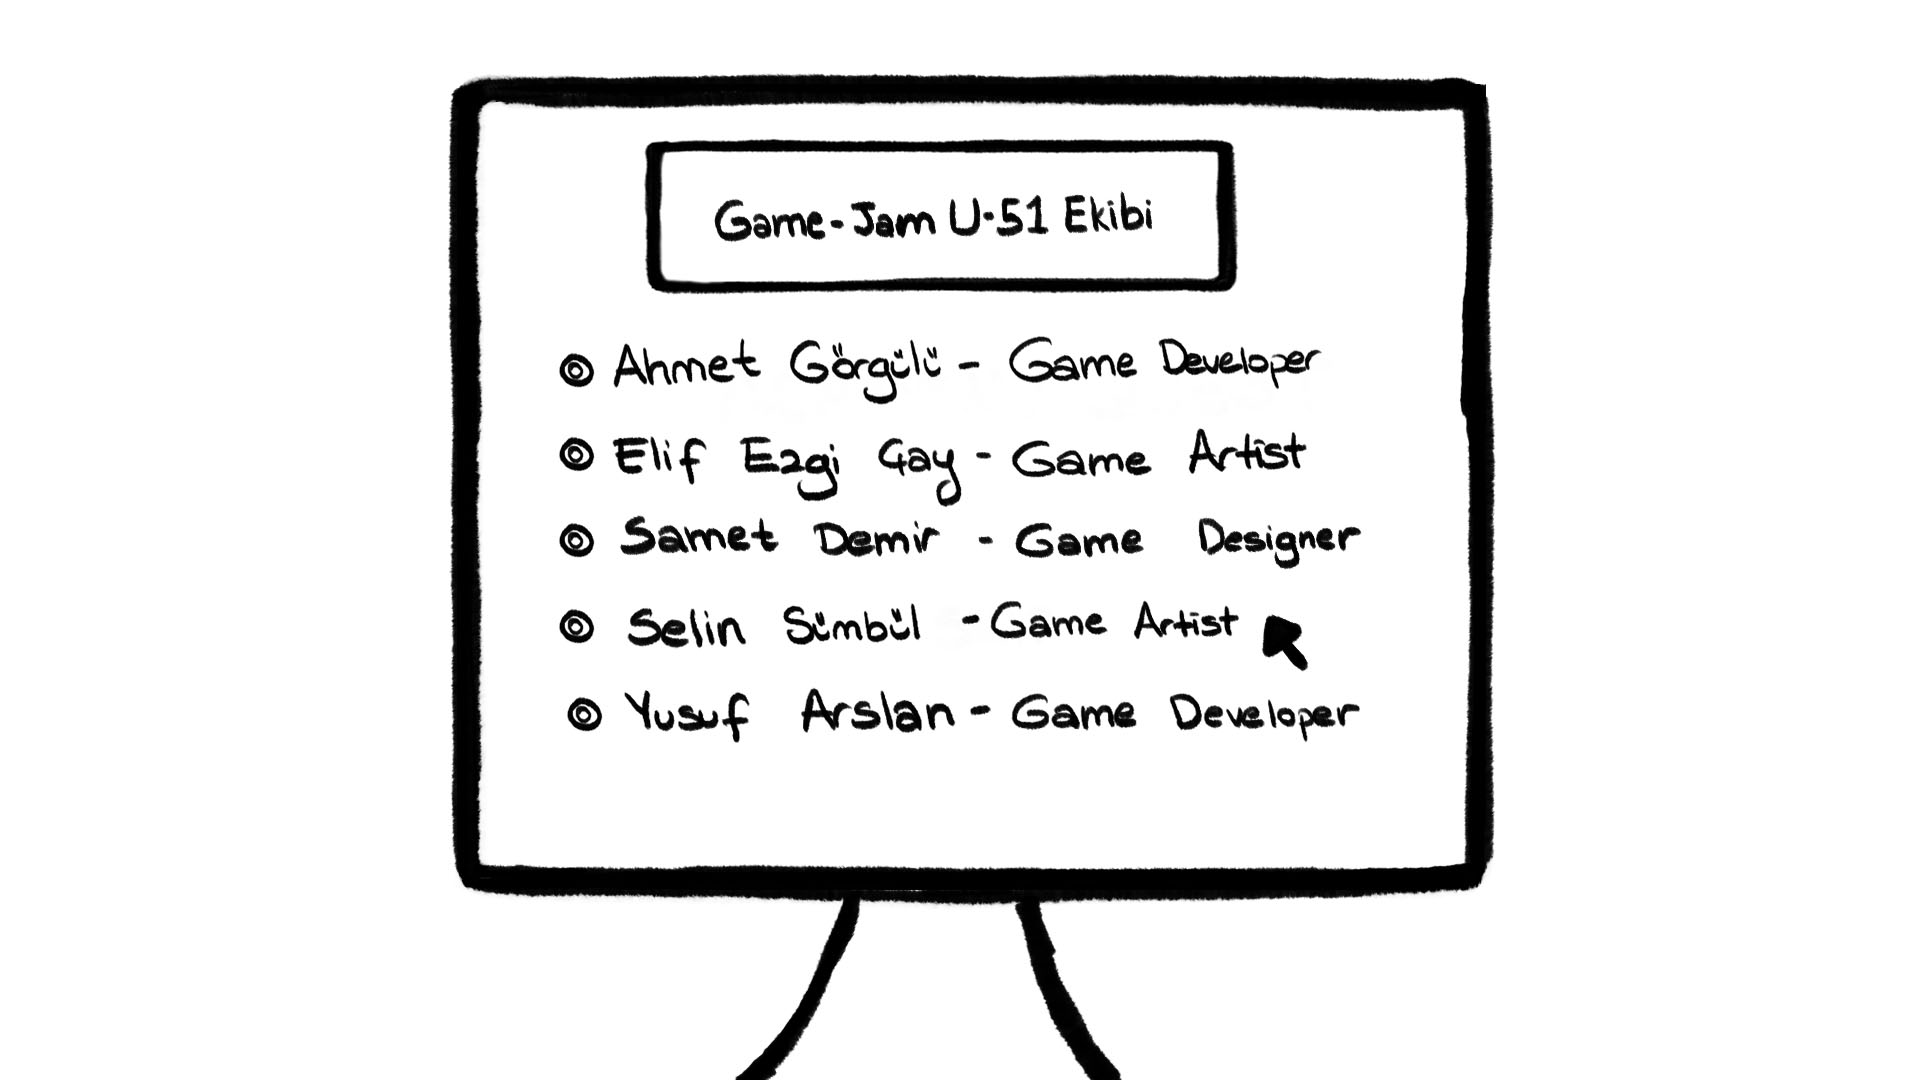 Game-Jam U-51 Ekibi
Ahmet Görgülü - Game Developer
Elif Ezgi Çay - Game Artist
Samet Demir - Game Designer
Selin Sümbül - Game Artist
Yusuf Arslan - Game Developer